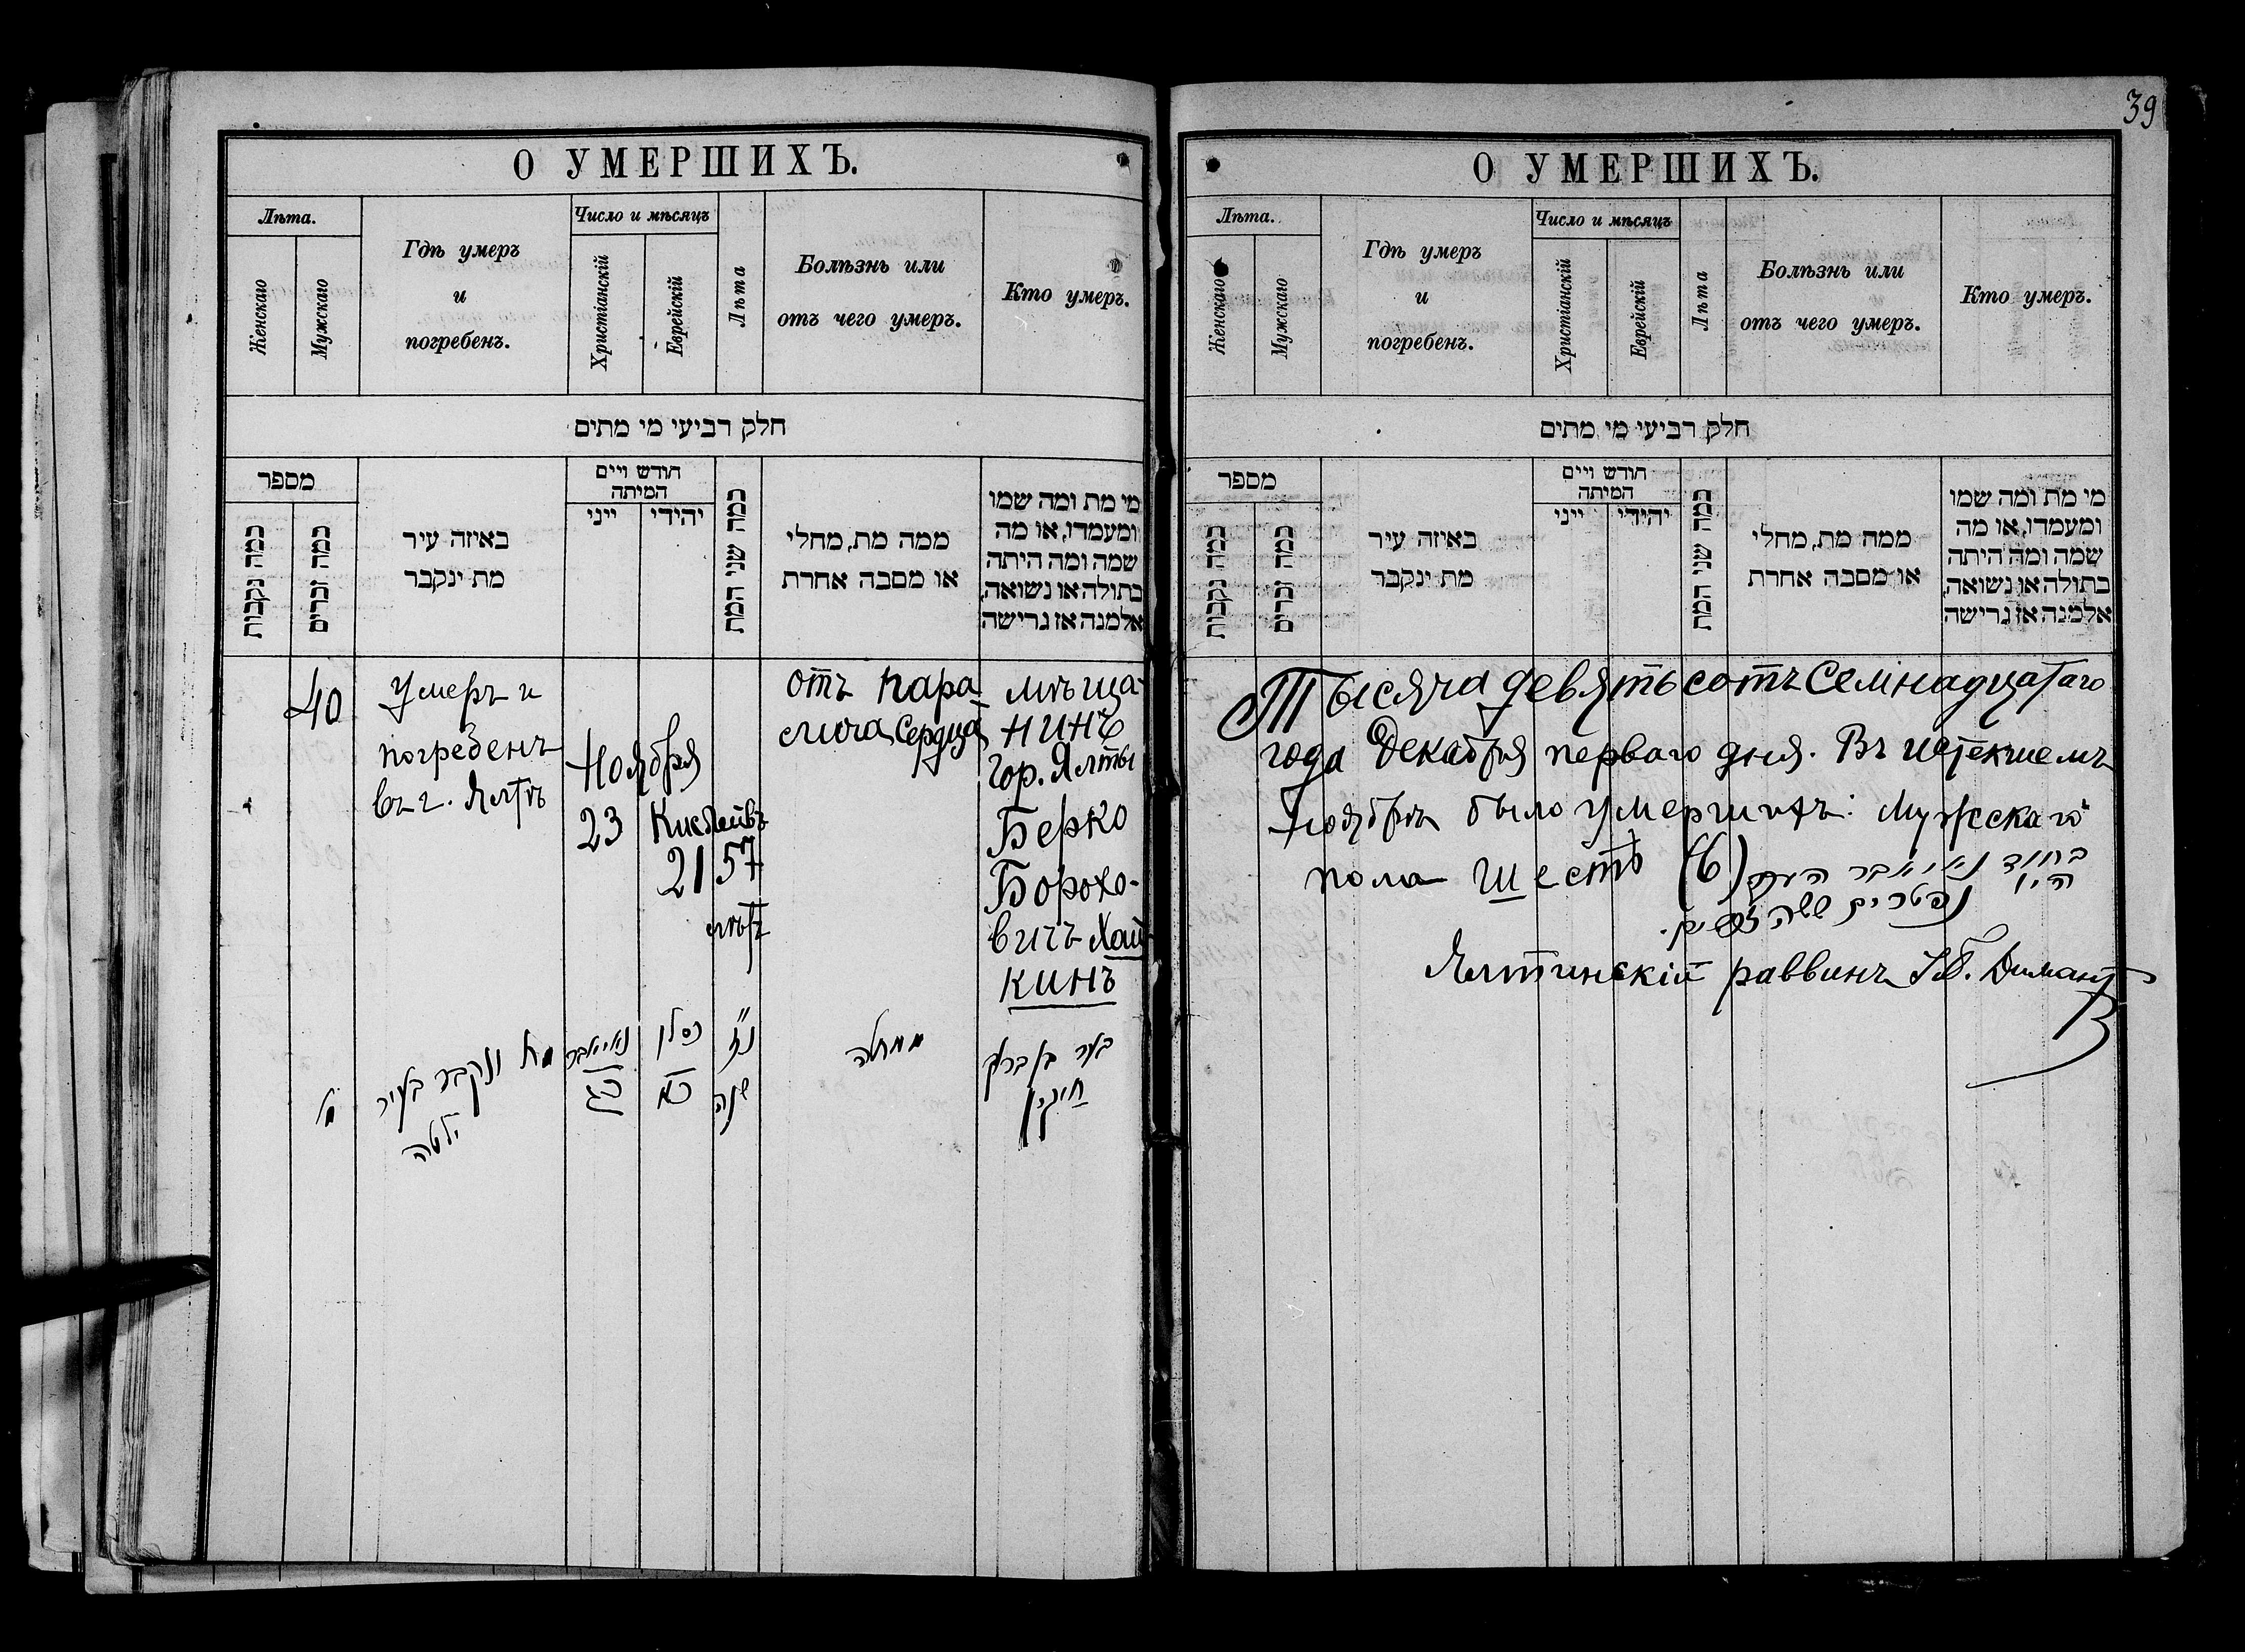 О УМЕРШИХЪ.
Лѣта.
Женскаго
Мужскаго
Гдѣ умеръ
и
погребенъ.
Число и мѣсяцъ
Христіанскій
Еврейскій
Лѣта
Болѣзнь или
отъ чего умеръ.
Кто умеръ.
חלק רביעי מי מתים
מספר
כמה נקבות
כמה זכרים
באיזה עיר
מת ינקבר
חודש ויים
המיתה
ייני
יהידי
כמה שני המת
ממה מת, מחלי
או מסבה אחרת
מי מת ומה שמו
ומעמדו, או מה
שמה ומה היתה
בתולה או נשואה,
אלמנה אז גרישה
40
Умеръ и
погребенъ
въ г. Ялтѣ
Ноября
23
Кислейвъ
21
57
лѣтъ
отъ пара
лича сердца
мѣща-
нинъ
гор. Ялты
Берко
Борохо-
вичъ Хай
кинъ
מ
מת ונקבר בעיר
ילטה
נאיאבר
כג
כסלו
כא
נז
שנה
ממחלה
בער בן ברוך
חייקין
39
О УМЕРШИХЪ.
Лѣта.
Женскаго
Мужскаго
Гдѣ умеръ
и
погребенъ.
Число и мѣсяцъ
Христіанскій
Еврейскій
Лѣта
Болѣзнь или
отъ чего умеръ.
Кто умеръ.
חלק רביעי מי מתים
מספר
כמה נקבות
כמה זכרים
באיזה עיר
מת ינקבר
חודש ויים
המיתה
ייני
יהידי
כמה שני המת
ממה מת, מחלי
או מסבה אחרת
מי מת ומה שמו
ומעמדו, או מה
שמה ומה היתה
בתולה או נשואה,
אלמנה אז גרישה
Тысяча девятьсотъ семнадцатаго
года Декабря перваго дня. Въ истекшемъ
Ноябрѣ было умершихъ: мужскаго
пола шесть (6)
בחודש נאיאבר
היו נפטרים ששה
Ялтинскій раввинъ Димантъ